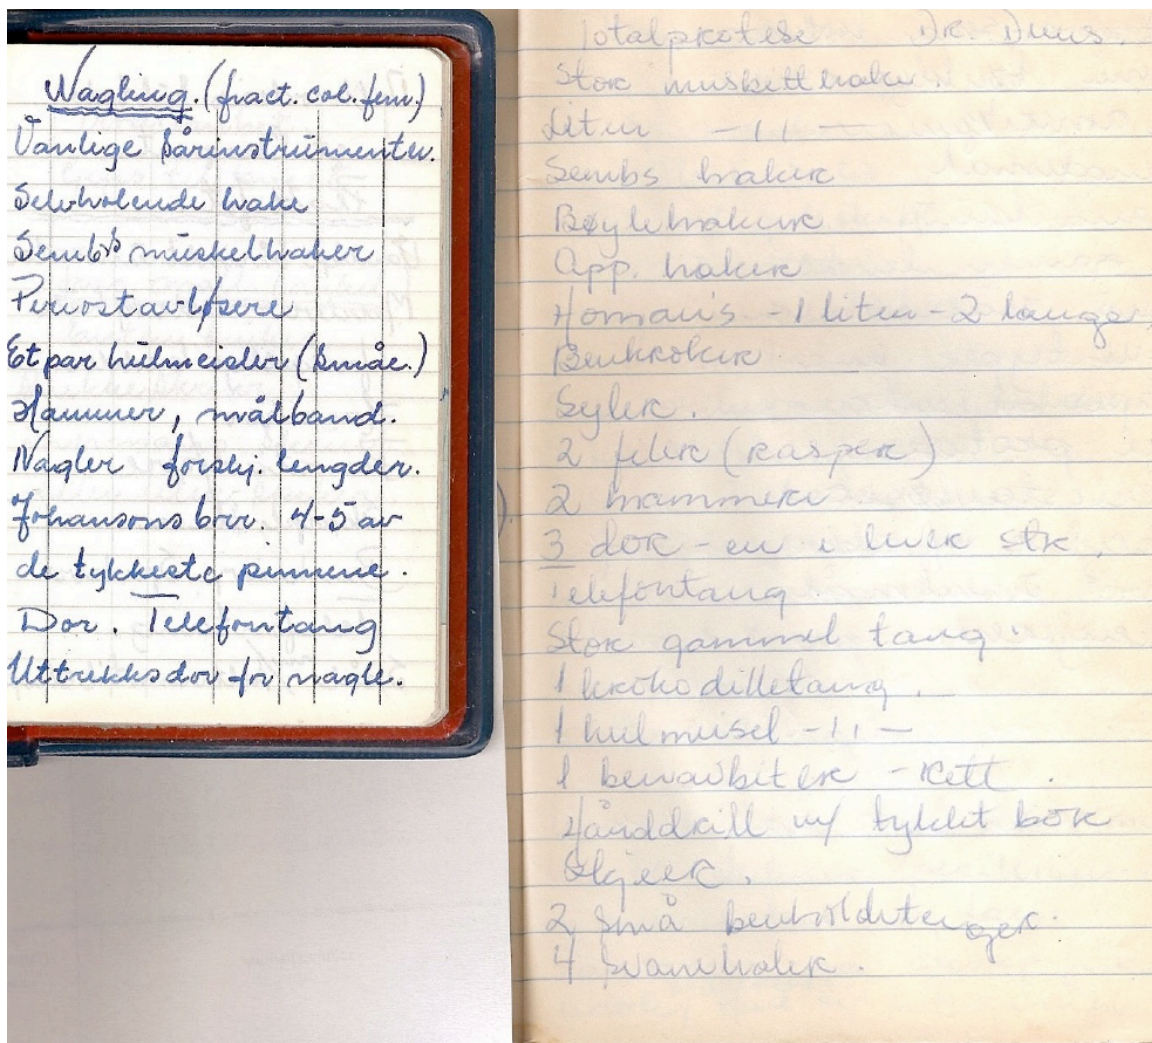 Nagling. (fract. col. fem.)
Vanlige Sårinstrumenter.
Selvholdende hake
Semb's muskelhaker
Periostavløsere
Et par hulmeisler (Smaæ.)
Hammer, målband.
Nagler forskj. lengder.
Johansons bor. 4-5 av
de tykkeste pinnene.
Dor. Telefontang
Uttrekksdor for nagle.
Totalprotese Dr. Duus.
Stor muskelhake.
Liten -11-
Sembs haker
Bøylehaker
App. haker
Homan's - 1 liten - 2 lange
Benkroker
Syler.
2 filer (rasper)
2 hammere
3 dor - en i hver str.
Telefontang
Stor gammel tang.
1 krokodilletang.
1 hulmeisel -11-
1 benavbiter - Rett.
Hånddrill m/ tykt bor
Skjeer.
2 Små benholdetenger.
4 Svanehaler.